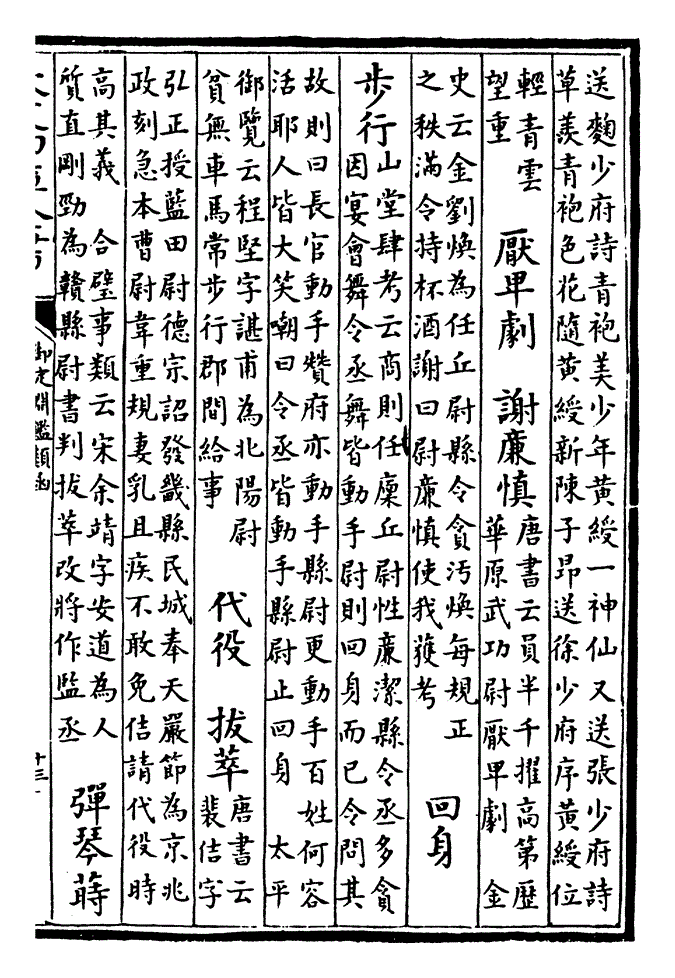 送麴少府詩青袍美少年黃綬一神仙又送張少府詩
草羨青袍色花隨黃綬新陳子昂送徐少府序黃綬位
輕青雲
望重
厭卑劇 謝廉慎
唐書云員半千擢高第歷
華原武功尉厭卑劇 金
史云金劉煥為任丘尉縣令貪汚煥每規正
之秩滿令持杯酒謝曰尉廉慎使我獲考
回身
步行
山堂肆考云商則任廩丘尉性廉潔縣令丞多貪
因宴會舞令丞舞皆動手尉則回身而已令問其
故則曰長官動手贊府亦動手縣尉更動手百姓何容
活耶人皆大笑嘲曰令丞皆動手縣尉止回身 太平
御覽云程堅字諶甫為北陽尉
貧無車馬常步行郡間給事
代役 拔萃
唐書云
裴佶字
弘正授藍田尉德宗詔發畿縣民城奉天嚴節為京兆
政刻急本曹尉韋重規妻乳且疾不敢免佶請代役時
高其義 合璧事類云宋余靖字安道為人
質直剛勁為贛縣尉書判拔萃改將作監丞
彈琴蒔
御定淵鑑類函
十三